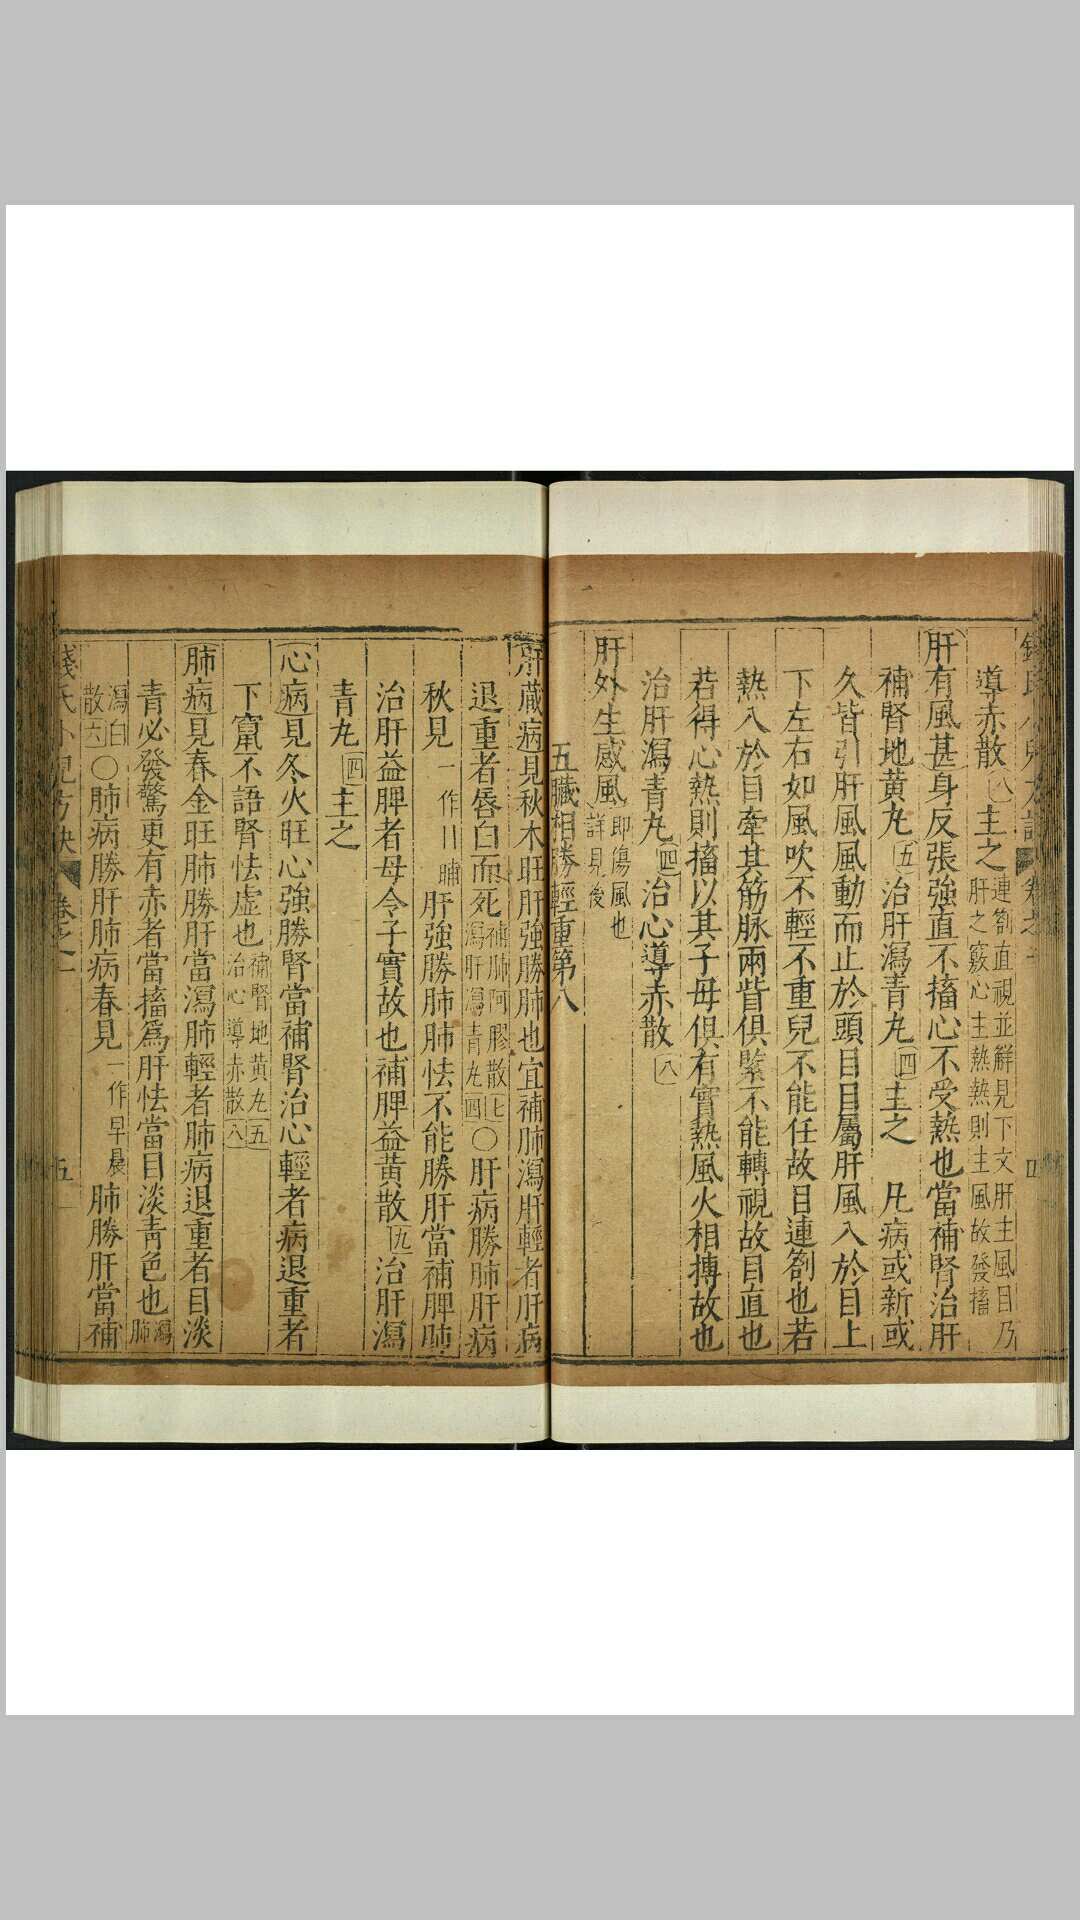 導赤散八主之連劄直視並解見下文肝主風目乃肝之竅心主熱熱則生風故發搐
肝有風甚身反張強直不搐心不受熱也當補腎治肝
補腎地黄丸五治肝瀉青丸四主之 凡病或新或
久皆引肝風風動而止於頭目目屬肝風入於目上
下左右如風吹不輕不重兒不能任故目連劄也若
熱入於目牽其筋脉兩眥俱緊不能轉視故目直也
若得心熱則搐以其子母俱有實熱風火相搏故也
治肝瀉青丸四治心導赤散八
肝外生感風即傷風也詳見後
五臟相勝輕重第八
肝臟病見秋木旺肝強勝肺也宜補肺瀉肝輕者肝病
退重者唇白而死補肺阿膠散七瀉肝瀉青丸四○肝病勝肺肝病
秋見一作日晡肝強勝肺肺怯不能勝肝當補脾肺
治肝益脾者母令子實故也補脾益黄散九治肝瀉
青丸四主之
心病見冬火旺心強勝腎當補腎治心輕者病退重者
下竄不語腎怯虚也補腎地黄丸五治心導赤散八
肺病見春金旺肺勝肝當瀉肺輕者肺病退重者目淡
青必發驚更有赤者當搐為肝怯當目淡青色也瀉肺
瀉白散六○肺病勝肝肺病春見一作早晨肺勝肝當補
錢氏小兒方訣 卷之一 五